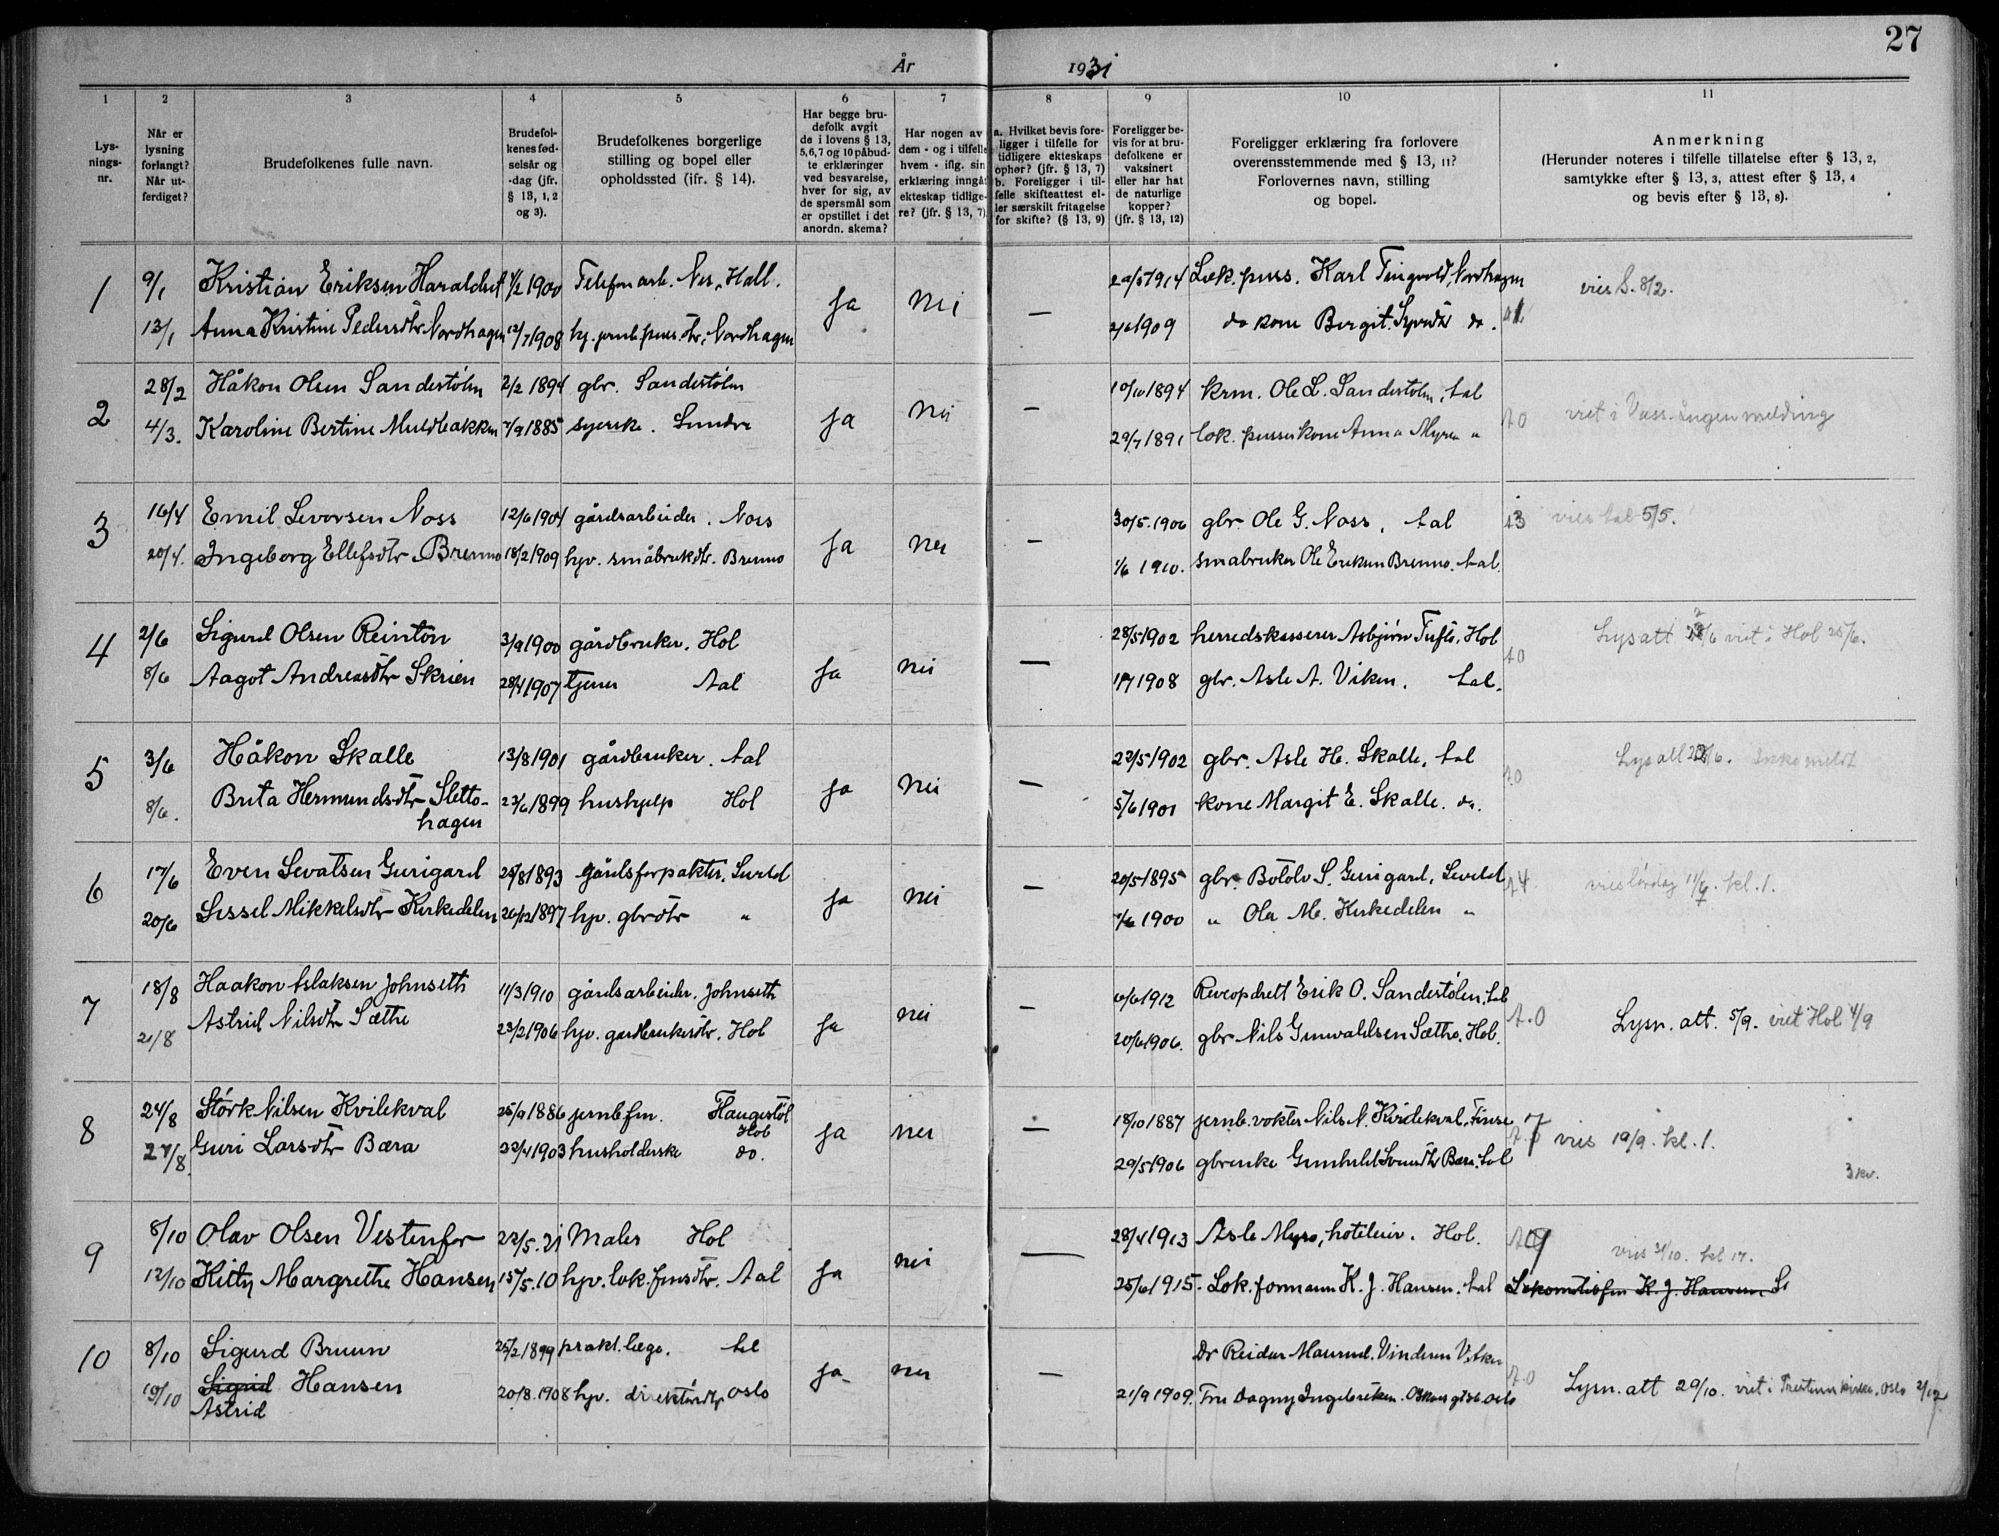 27
År 1931
1 2 3 4 5 6 7 8 9 10 11
Lys-
nings-
nr.
Når er
lysning
forlangt?
Når ut-
ferdiget?
Brudefolkenes fulle navn.
Brudefol-
kenes fød-
selsår og
-dag (jfr.
§ 13, 1, 2
og 3).
Brudefolkenes borgerlige
stilling og bopel eller
opholdssted (ifr. § 14).
Har begge bru-
defolk avgit
de i lovens § 13,
5,6,7 og 10 påbud-
te erklæringer
ved besvarelse,
hver for sig, av
de spørsmål som
er opstillet i det
anordn. skema?
Har nogen av
dem - og i tilfelle
hvem - iflg. sin
erklæring inngåt
ekteskap tidlige-
re? (jfr. § 13, 7)
a. Hvilket bevis fore-
ligger i tilfelle for
tidligere ekteskaps
ophør? (jfr. § 13, 7)
b. Foreligger i til-
felle skifteattest el-
ler særskilt fritagelse
for skifte? (§ 13, 9)
Foreligger be-
vis for at bru-
defolkene er
vaksinert
eller har hat
de naturlige
kopper?
(jfr. § 13, 12)
Foreligger erklæring fra forlovere
overensstemmende med § 13, 11?
Forlovernes navn, stilling
og bopel.
Anmerkning
(Herunder noteres i tilfelle tillatelse efter § 13, 2,
samtykke efter § 13, 3, attest efter § 13, 4
og bevis efter § 13, 8).
1 9/1 Kristian Eriksen Haraldset 4/2 1900 Telefonarb. Nes, Hall. ja nei — 1914 Lok. puss. Karl Tingvold, Nordhagen vies S. 8/2.
13/1 Anna Kristine Pedersdtr. Nordhagen 12/7 1908 hj. jernb.puss.dtr. Nordhagen 1909 do kone Bergit do.
2 28/2 Håkon Olsen Sandestølen 2/2 1894 gbr. Sandestølen ja nei — 10/10 1894 krm. Ole L. Sandestølen, Aal A0 viet i Voss. Ingen melding
4/3. Karoline Bertine Muldbakken 7/9 1885 syerske. Sundre 29/7 1891 lok. pusserkone Anna Myren "
3 16/4 Emil Sevorsen Noss 12/6 1904 gårdsarbeider. Noss ja nei — 30/5. 1906 gbr. Ole G. Noss, Aal 13 vies Aal 5/5.
20/4. Ingeborg Ellefsdtr. Brenno 18/2 1909 hjv. småbrukdtr. Brenno 1/6 1910. småbruker Ole Eriksen Brenno. Aal.
4 2/6 Sigurd Olsen Reinton 3/9 1900 gårdbruker. Hol ja nei — 28/5 1902 herredskasserer Asbjørn Tufte, Hol A0 Lysatt /6 viet i Hol 25/6.
8/6 Aagot Andreasdtr Skrien 28/4 1907 tjener Aal 1908 gbr. Asle A. Viken. Aal.
5 3/6 Håkon Skalle 13/8 1901 gårdbruker. Aal ja nei — 22/5 1902 gbr. Asle H. Skalle, Aal A0 Lysatt /6. Ikke meldt
8/6. Brita Hermundsdtr Sletto-
hagen 22/6 1899 hushjelp Hol 5/6 1901 kone Margit E. Skalle. do.
6 17/6 Even Sevatsen Gurigard 28/8 1893 gårdsforpakter, Leveld ja nei — 20/5 1895 gbr. Botolv S. Gurigard, Leveld 14 vies lørdag 11/7. kl. 1.
20/6 Sissel Mikkelsdtr Kirkedelen 26/12 1897 hjv. gbrdtr " 1900 " Ola M. Kirkedelen "
7 18/8 Haakon Aslaksen Johnseth 11/3 1910 gårdsarbeider. Johnseth ja nei — 6/6 1912 Reveopdrett Erik O. Sandestølen, Aal A.0 Lysn. att. 5/9. viet Hol 4/9
21/8 Astrid Nilsdtr Sæthre 23/2 1906 hjv. gardbrukerdtr. Hol 20/6 1906. gbr Nils Gunvaldsen Sæthre. Hol.
8 24/8 Störk Nilsen Kvilekval 25/9 1886 jernb.fm. Haugestøl
Hol ja nei — 18/10 1887 jernb.vokter Nils N. Kvilekval, Finse 17 vies 19/9. kl. 1.
27/8. Guri Larsdtr Bæra 22/4 1903 husholderske do. 29/5 1906 gbrenke Gunhild Svendsdtr Bæra. Aal 3 kv.
9 8/10 Olav Olsen Vestenfor 22/5. Maler Hol ja nei — 28/4 1913 Asle Myro, hoteleier. Hol. 19 vies 31/10. kl 17.
12/10 Kitty Margrethe Hansen 15/5. 10 hjv. lok.fmsdtr. Aal 25/6 1915. Lok. formann K. J. Hansen. Aal Lokomotivfm K. J. Hansen
10 8/10 Sigurd Bruun 25/2 1899 prakt. læge. Aal ja nei — Dr Reidar Maurud. Vinderen V. Aker A.0 Lysn. att 29/10. viet i kirke, Oslo 2/12
10/10 Sigrid Hansen
Astrid 20/8. 1908 hjv. direktördtr Oslo 21/9 1909. Fru Dagny Ingebretsen. Oslo